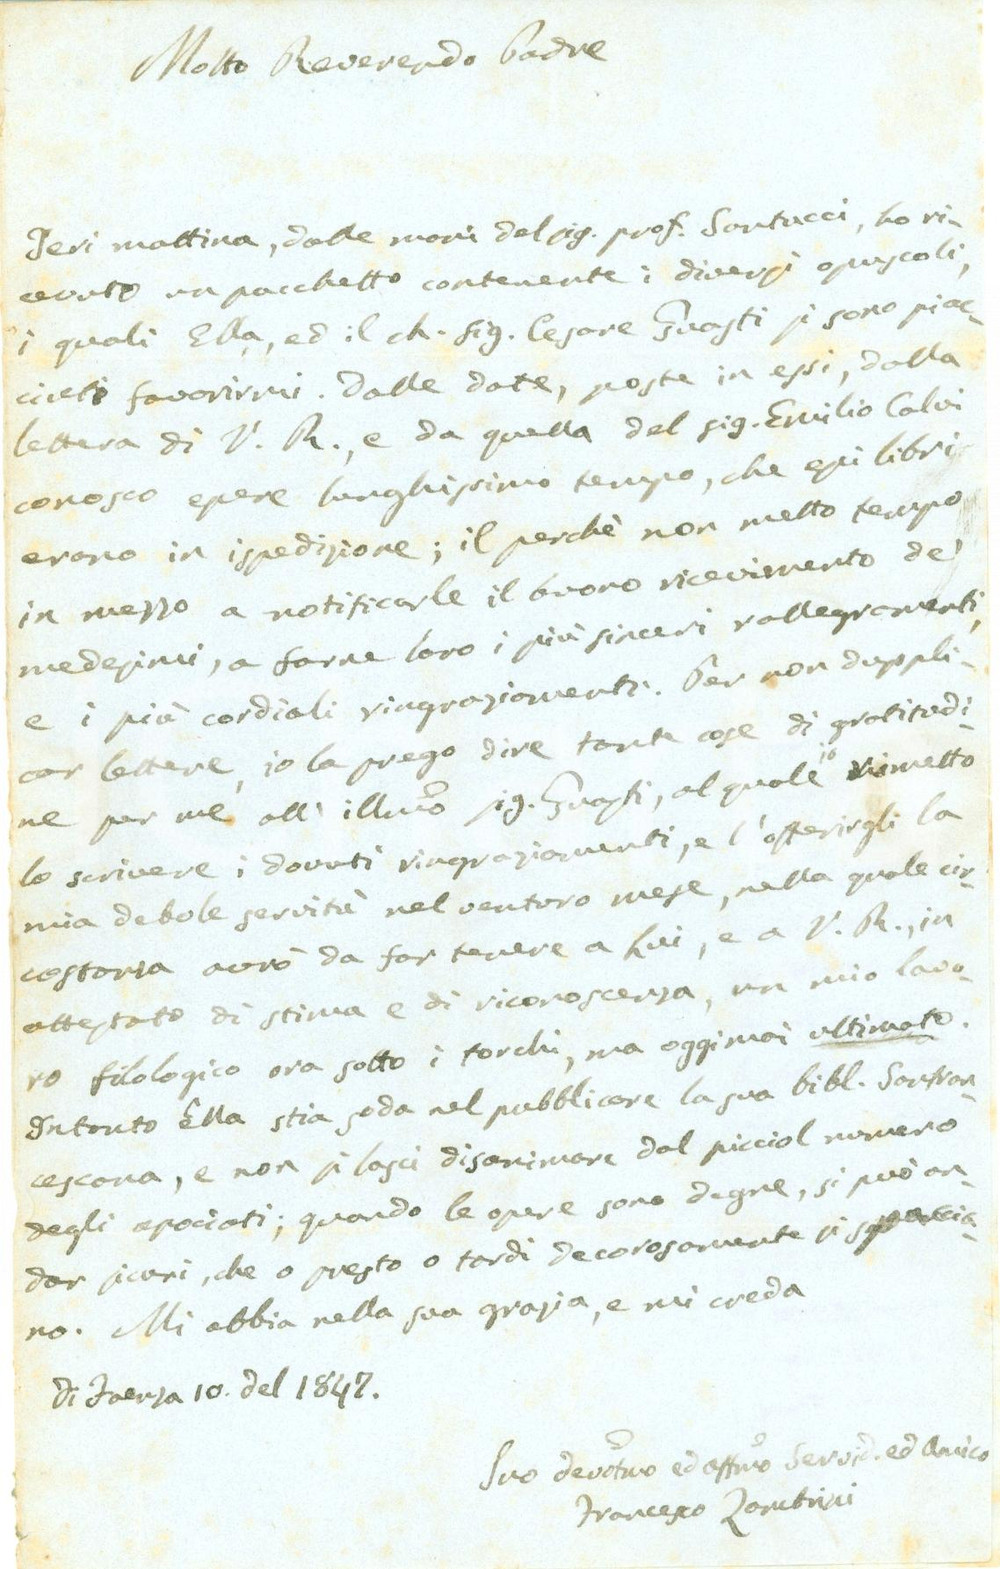 Molto Reverendo Padre
Ieri mattina, dalle mani del sig. prof. Santucci, ho ri-
cevuto un pacchetto contenente i diversi opuscoli,
i quali Ella, ed il ch. sig. Cesare Guasti si sono piac-
ciuti favorirmi. Dalle date, poste in essi, dalla
lettera di V. R., e da quella del sig. Emilio Calvi
conosco epere lunghissimo tempo, che epi libri
erano in ispedizione; il perchè non metto tempo
in mezzo a notificarle il buono ricevimento de'
medesimi, a farne loro i più sinceri rallegramenti,
e i più cordiali ringraziamenti. Per non duppli-
car lettere, io la prego dire tante cose di gratitudi-
ne per me all' illmo sig. Guasti, al quale io rimetto
lo scrivere i dovuti ringraziamenti, e l'offerirgli la
mia debole servitù nel venturo mese, nella quale cir-
costanza avrò da far tenere a Lui, e a V. R., in
attestato di stima e di riconoscenza, un mio lavo-
ro filologico ora sotto i torchi, ma oggimai ultimato.
Intanto Ella stia soda nel pubblicare la sua bibl. Sanfran-
cescana, e non si lasci disanimare dal picciol numero
degli apociati; quando le opere sono degne, si può an-
dar sicuri, che o presto o tardi decorosamente si spaccia-
no. Mi abbia nella sua grazia, e mi creda
Di Faenza 10. del 1847.
Suo devotmo ed affmo Servid. ed Amico
Francesco Zambrini